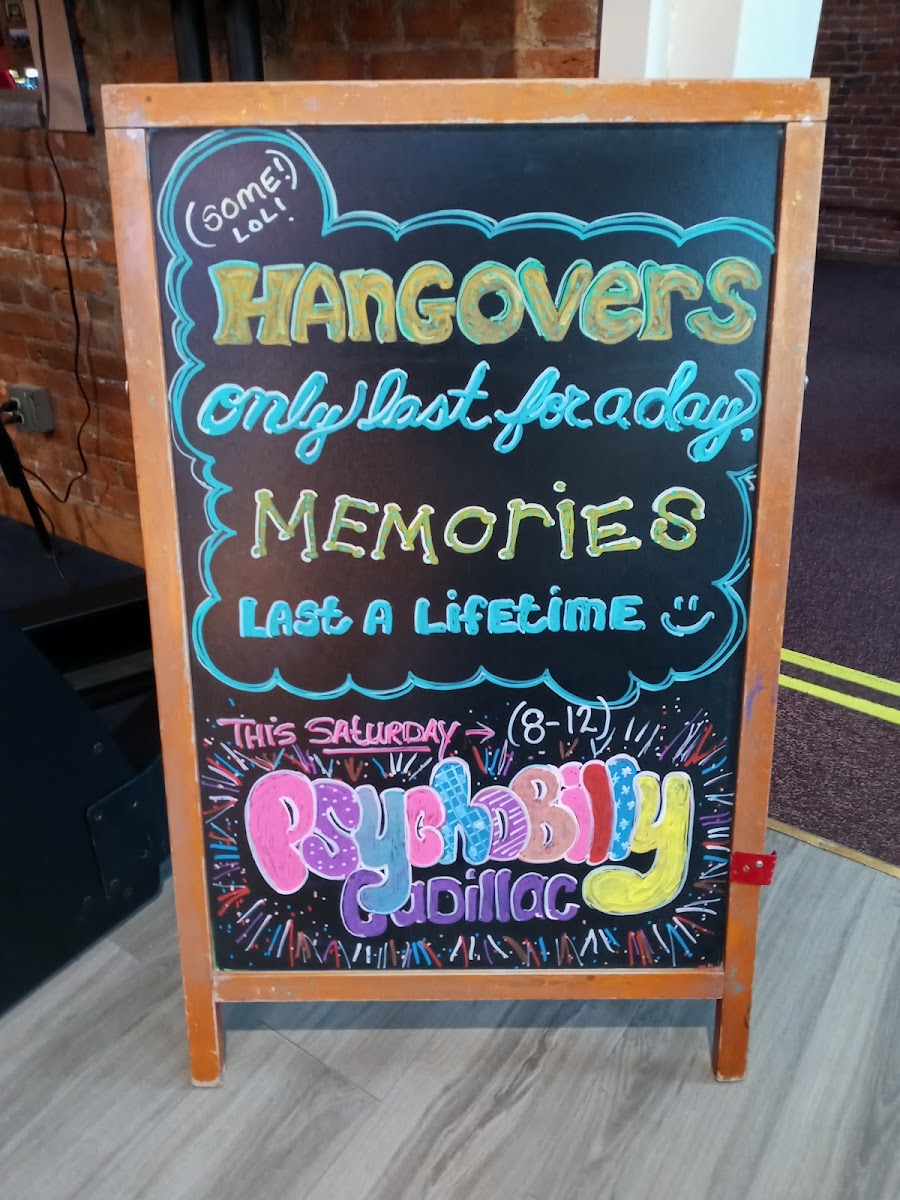 (SOME!)
LOL!
HANGOVERS
only last for a day,
MEMORIES
LAST A LIFETIME
THIS SATURDAY → (8-12)
PSYCHOBILLY
CADILLAC